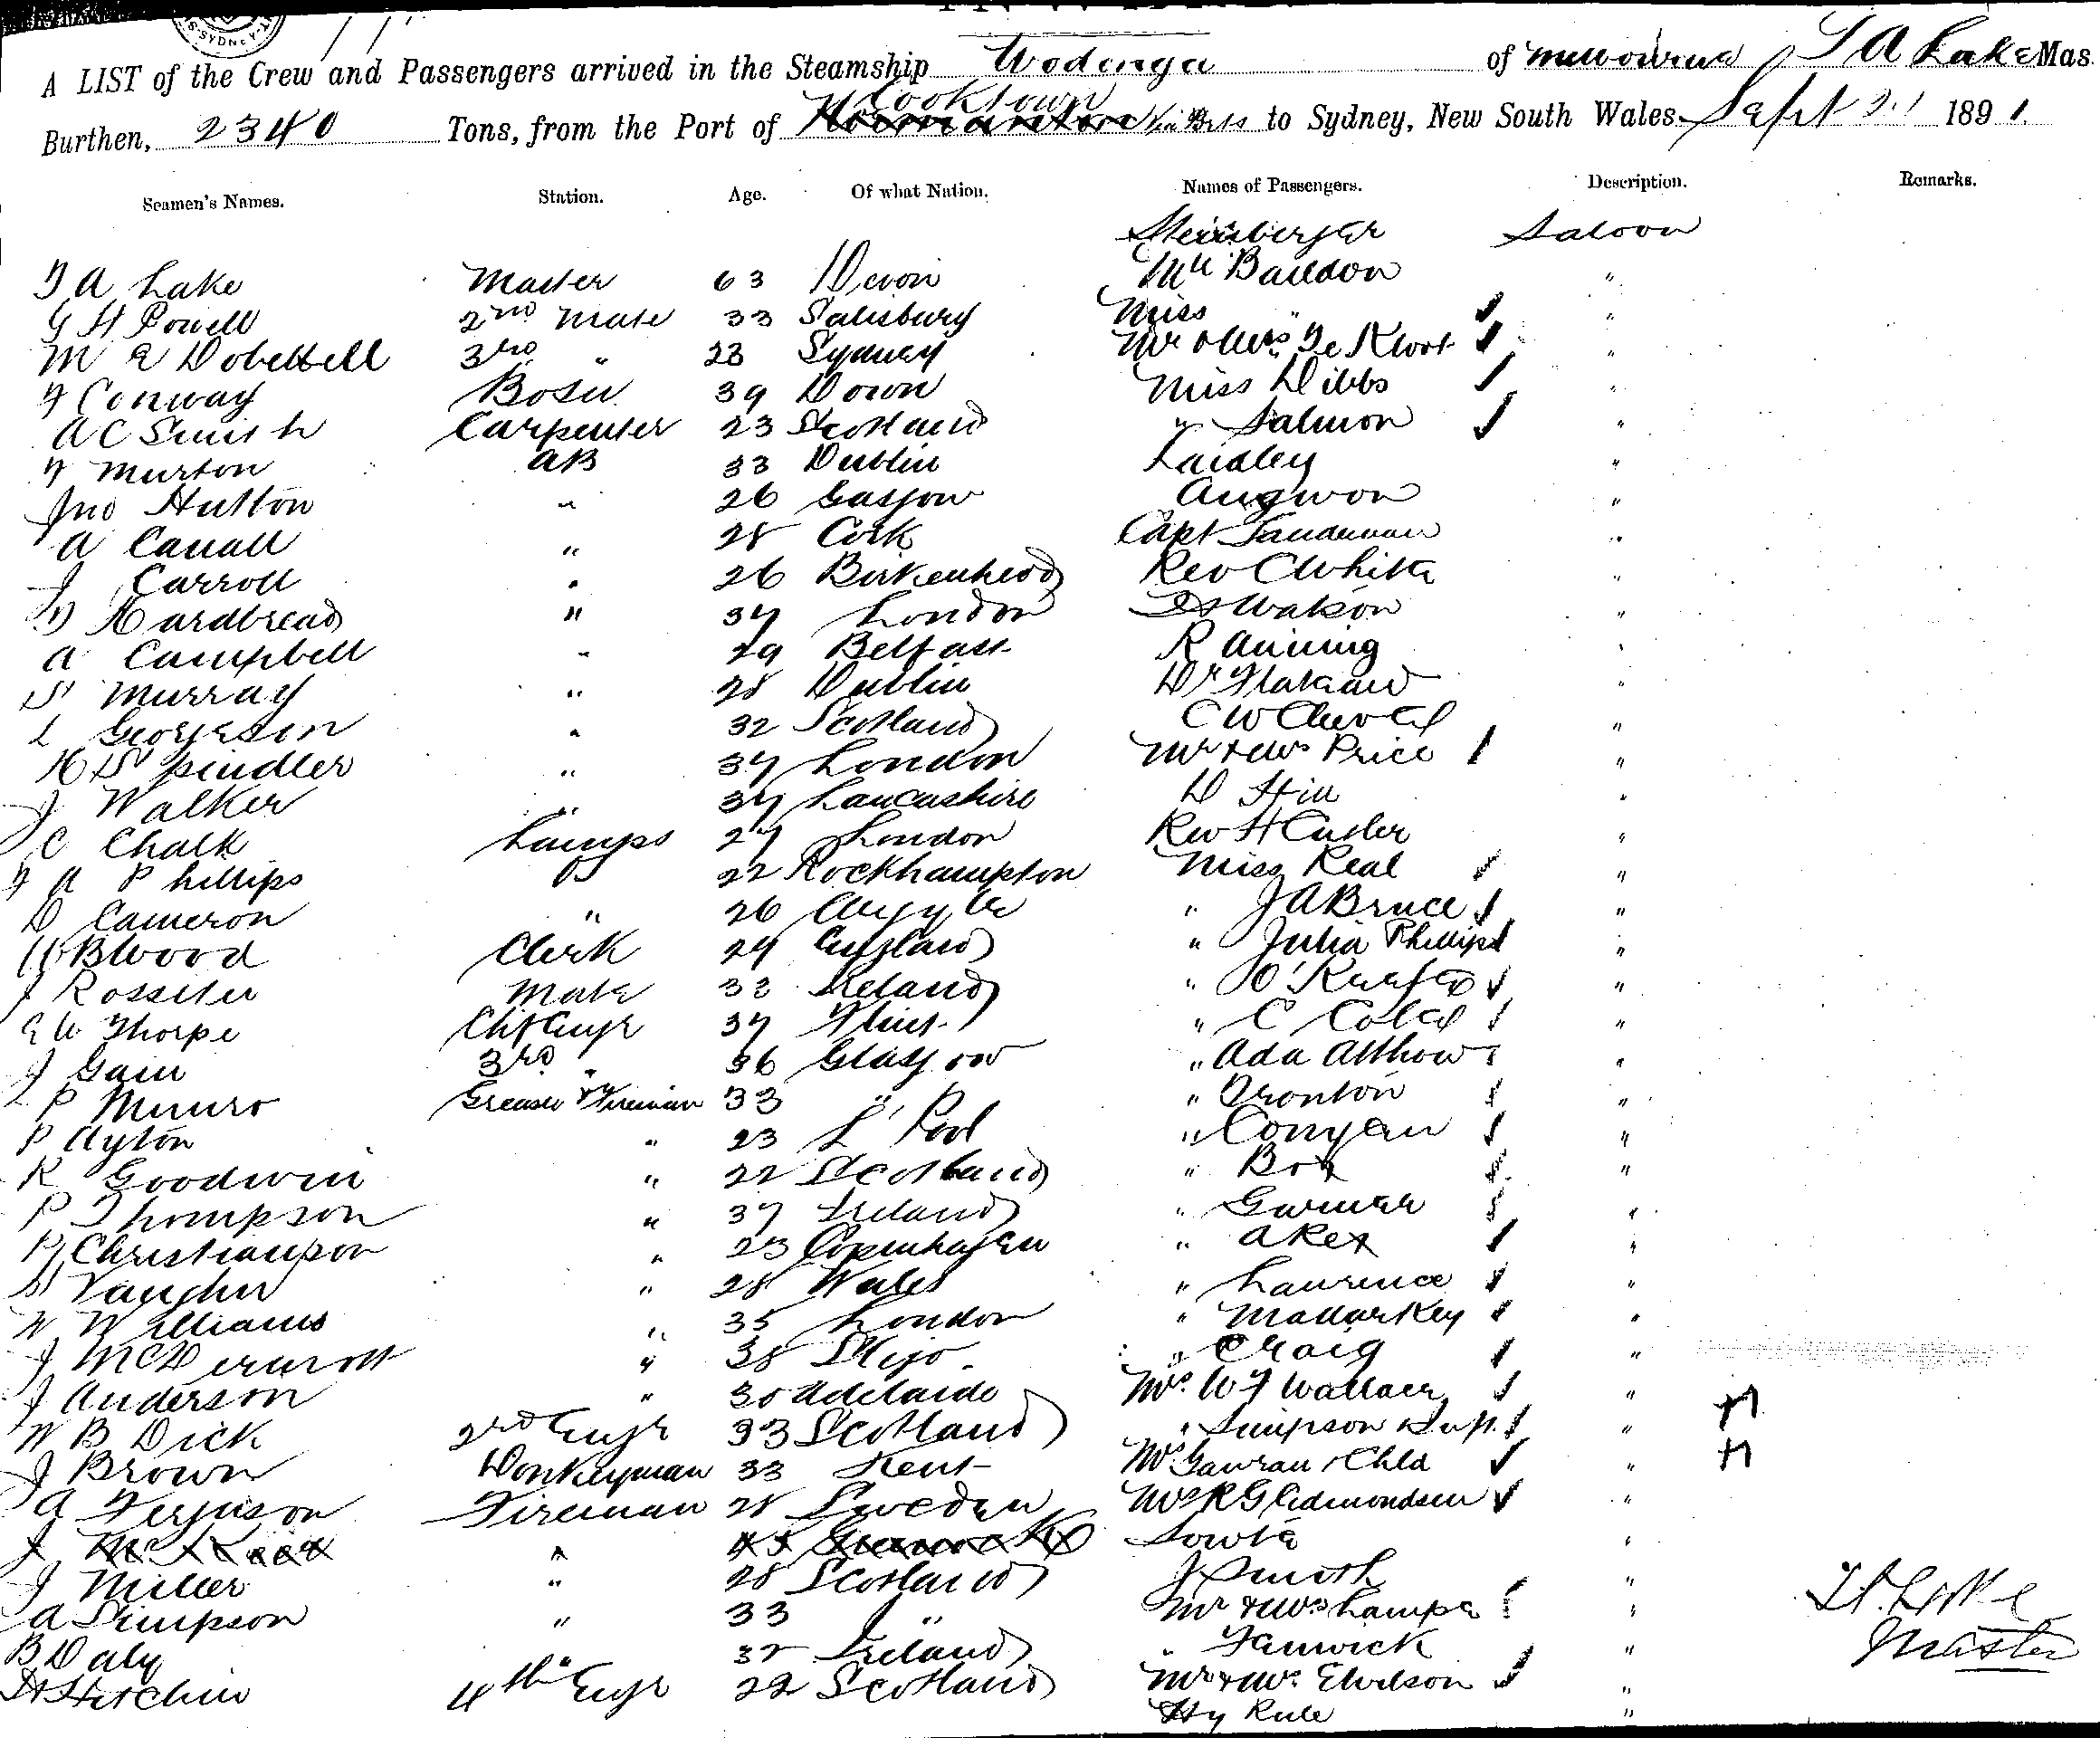 SYDNEY
A LIST of the Crew and Passengers arrived in the Steamship Wodonga of Melbourne T A Lake Mas
Burthen, 2340 Tons, from the Port of Cooktown Normanton Via Ports to Sydney, New South Wales Sept 21 1891.
Seamen's Names. Station. Age. Of what Nation. Names of Passengers. Description. Remarks.
Steinberger Saloon
T A Lake Master 63 Devon Mr Baildon "
G H Powell 2nd Mate 33 Salisbury Miss " "
M E Dobellell 3rd " 23 Sydney Mr & Mrs De Kloot "
F Conway Bosn 39 Down Miss Dibbs "
A C Smith Carpenter 23 Scotland " Salmon "
F Murton AB 33 Dublin Laidley "
Jno Hutton " 26 Gasgow Angwon "
A Carroll " 28 Cork Capt Sandeman "
J Carroll " 26 Birkenhead Rev C White "
D Hardbread " 37 London Watson "
A Campbell " 29 Belfast R Anning "
S Murray " 28 Dublin Dr "
L Georgeson " 32 Scotland C W "
H Spindler " 37 London Mr & Mrs Price "
J Walker " 37 Lancashire D Hill "
C Chalk Lamps 27 London Rev H Custer "
F A Phillips 22 Rockhampton Miss Real "
D Cameron " 26 Argyle " J A Bruce "
W B Wood Clerk 24 England " Julia Phillips "
J Rosseter Mate 32 Ireland " O'Keefe "
E W Thorpe Chf Engr 37 Flint " C Coles "
J Gain 3rd " 36 Glasgow " Ada Atthow "
P Munro Greaser & Fireman 33 " " Bronton "
P Ayton " 23 L'Pool " Conyan "
R Goodwin " 22 Scotland " Box "
P Thompson " 37 Ireland " Garmer "
P Christianson " 23 Copenhagen " A Rex "
S Vaughn " 28 Wales " Laurence "
W Williams " 35 London " Mallarkey "
J McDermott " 38 Sligo " Craig "
J Anderson " 30 Adelaide Mrs W F Wallace "
W B Dick 2nd Engr 33 Scotland " Simpson & Inf. "
J Brown Donkeyman 33 Kent Mrs Gawran & Chld "
A Ferguson Fireman 28 Sweden Mrs R G Edmondsen "
J " 45 Greenock Lowte "
J Miller " 28 Scotland J Smith "
A Simpson " 33 " Mr & Mrs Lampe "
B Daly " 32 Ireland " Fanwick "
Hitchin 4th Engr 22 Scotland Mr & Mrs Elvilson "
Hy Rule "
T A Lake
Master